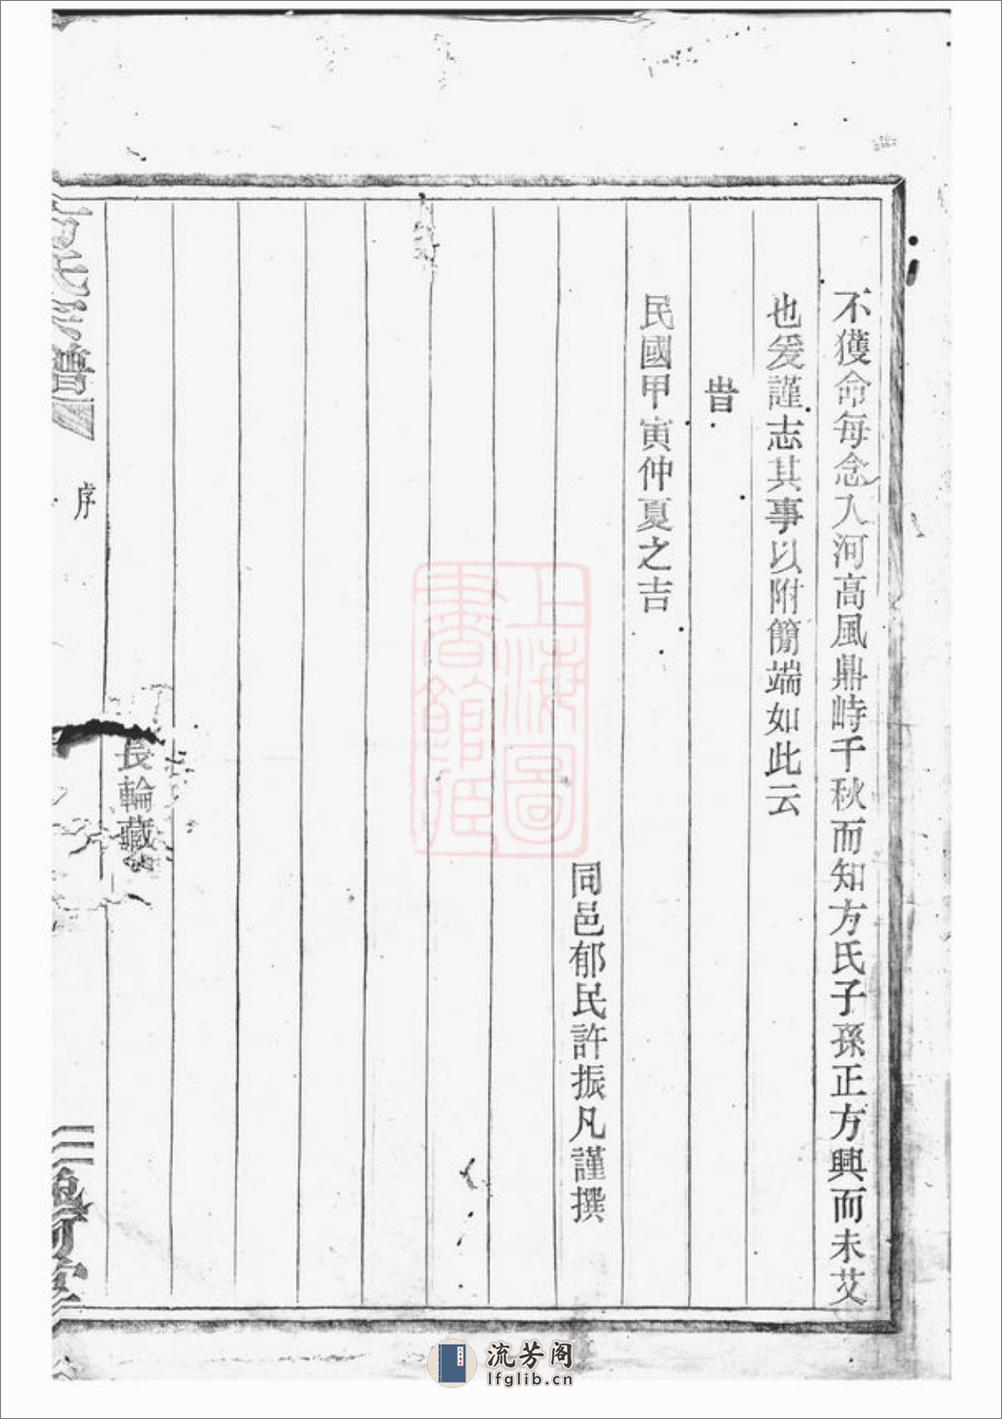 不獲命每念入河高風鼎峙千秋而知方氏子孫正方興而未艾
也爰謹志其事以附簡端如此云
旹
民國甲寅仲夏之吉
同邑郁民許振凡謹撰
長輪藏
方氏宗譜
序
上海圖
書館藏
流芳阁
lfglib.cn